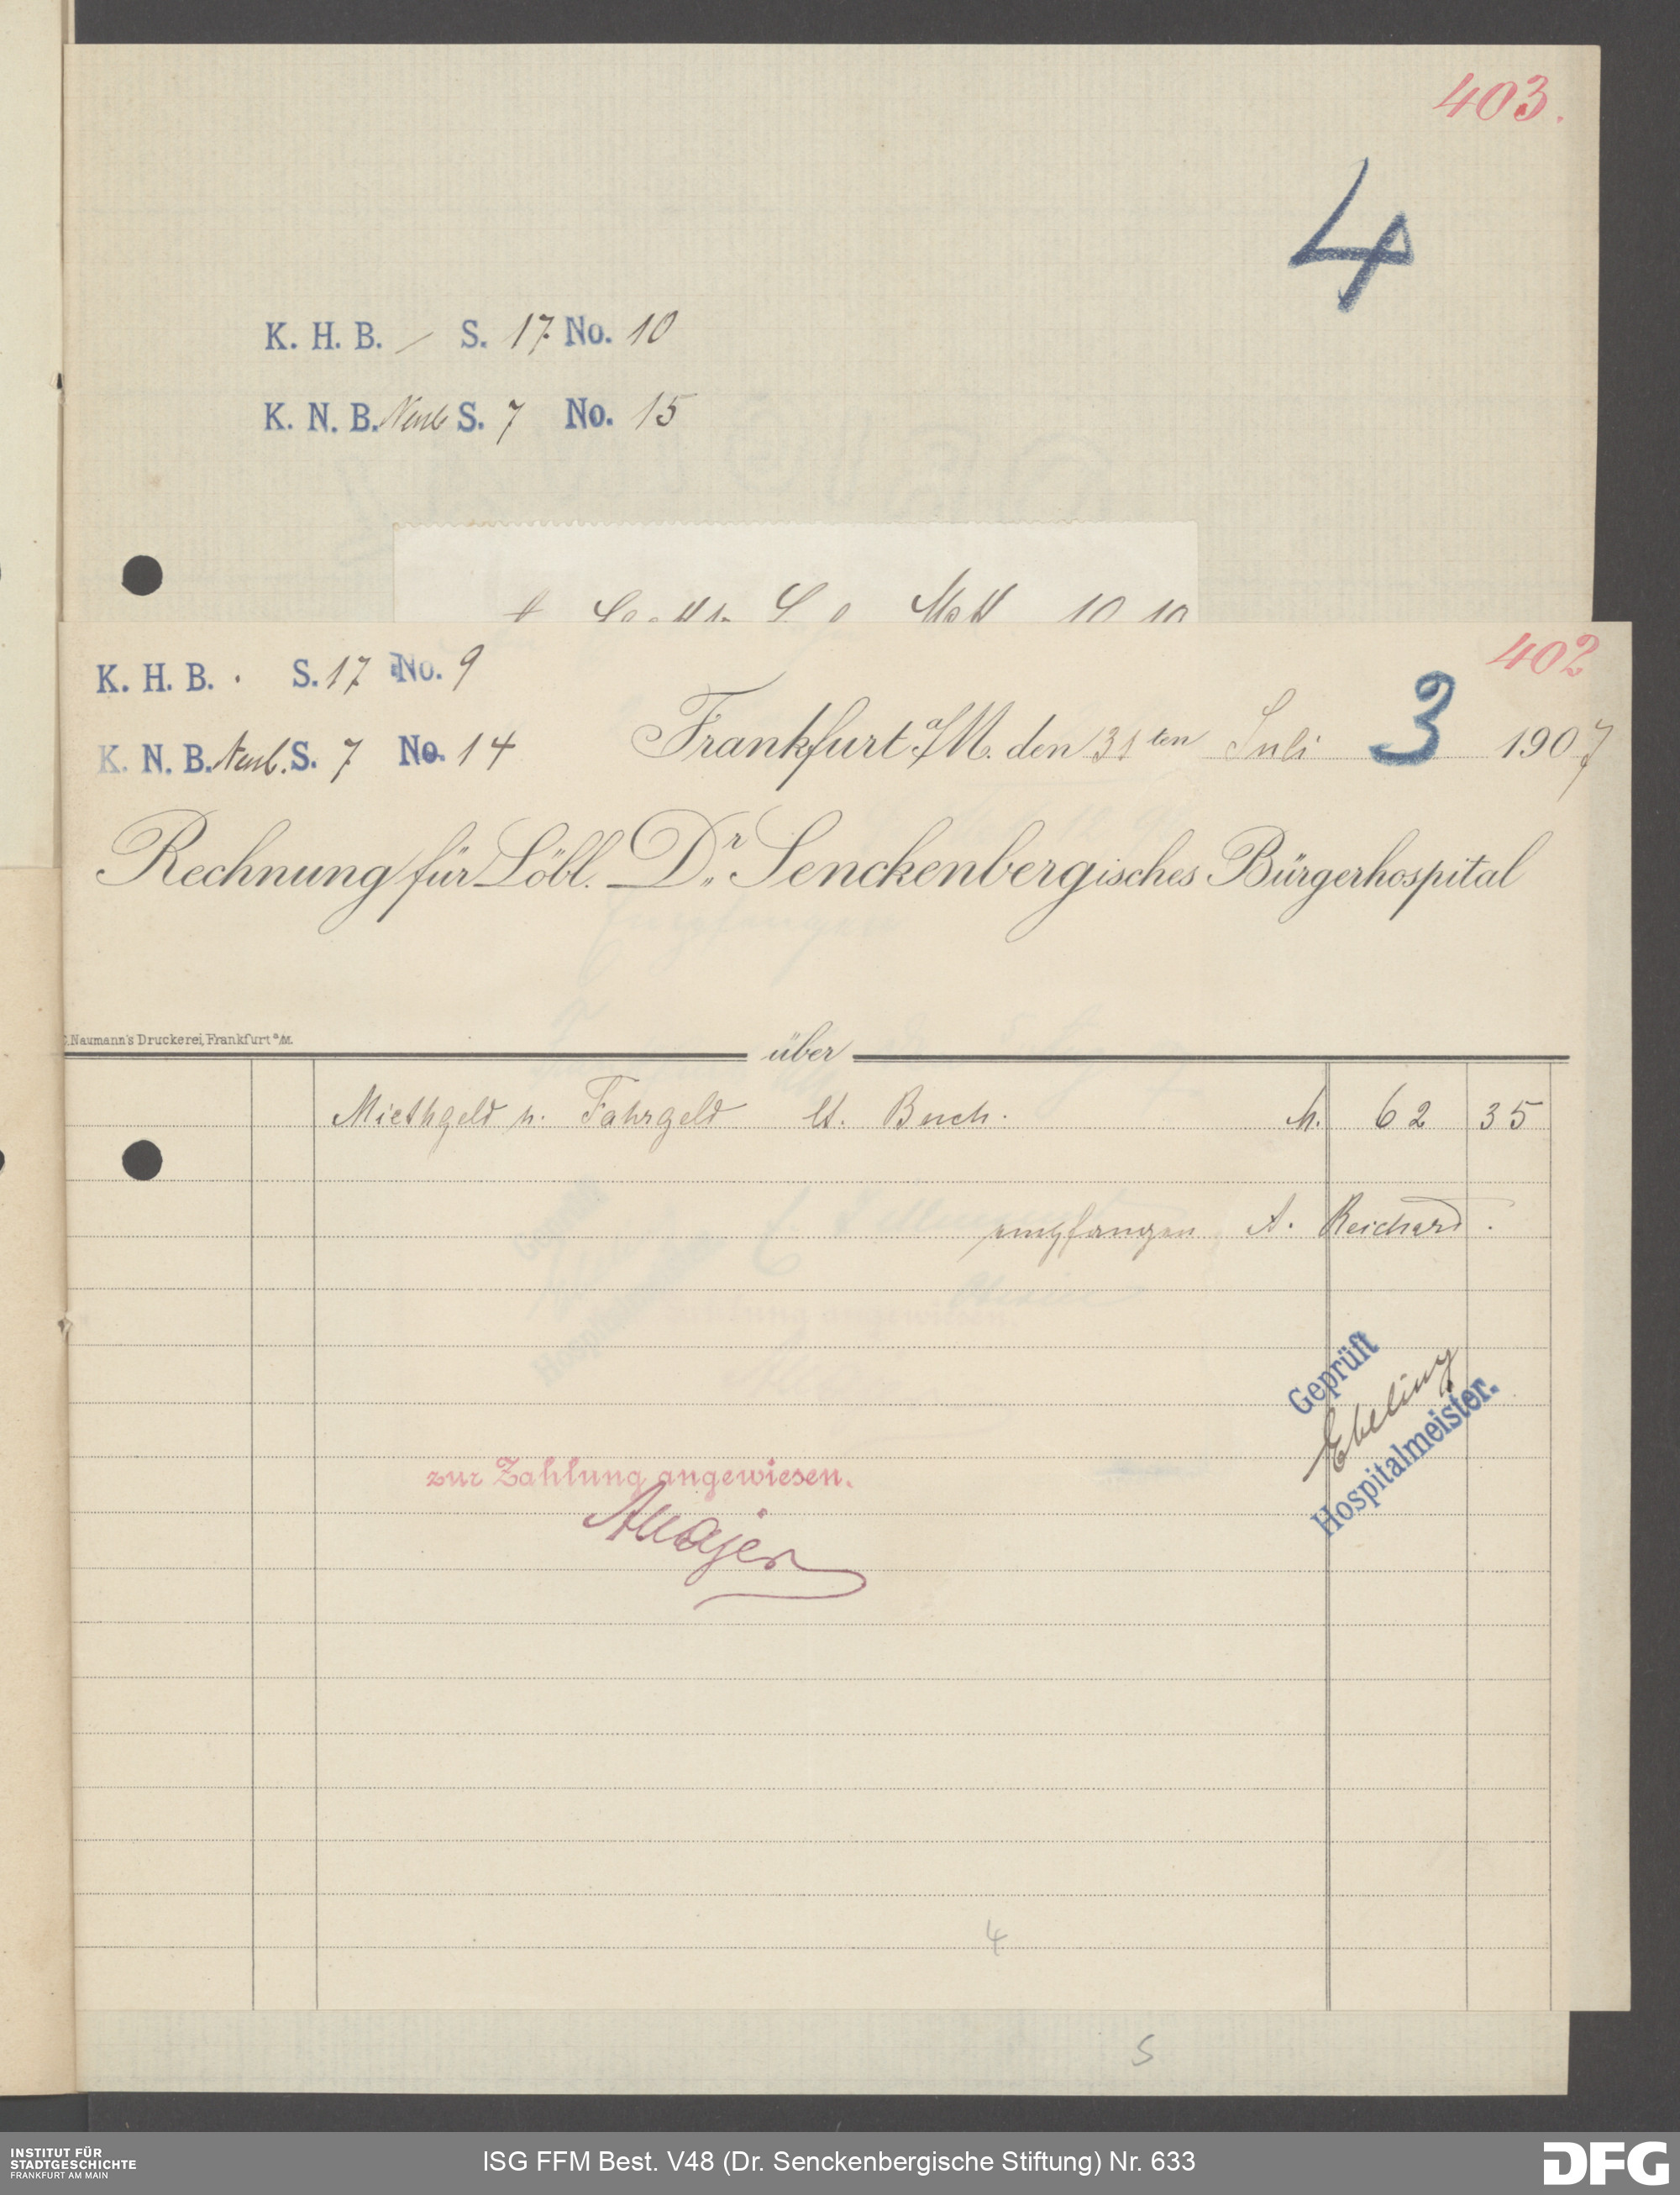 403.
4
K. H. B. — S. 17 No. 10
K. N. B. Neub S. 7 No. 15
10 10
402
K. H. B. . S. 17 No. 9
3
Frankfurt a/M. den 31ten Juli 1907
K. N. B. Neub. S. 7 No. 14
Rechnung für Löbl. Dr. Senckenbergisches Bürgerhospital
Naumann's Druckerei, Frankfurt a/M.
über
Miethgeld u. Fahrgeld lt. Buch. M. 62 35
empfangen A. Reichard.
Geprüft
Ebeling
Hospitalmeister.
zur Zahlung angewiesen.
4
5
INSTITUT FÜR
STADTGESCHICHTE
FRANKFURT AM MAIN
ISG FFM Best. V48 (Dr. Senckenbergische Stiftung) Nr. 633
DFG